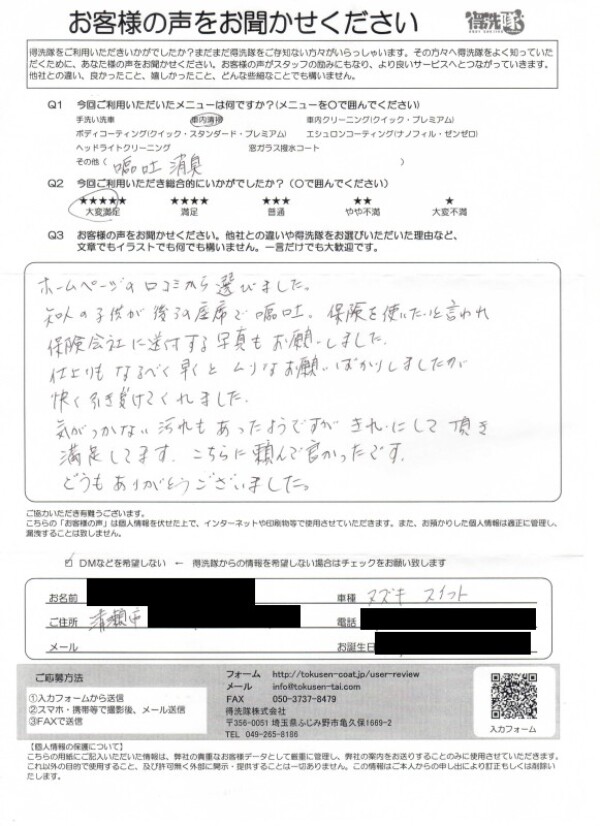 お客様の声をお聞かせください
得洗隊
得洗隊をご利用いただきいかがでしたか？まだまだ得洗隊をご存知ない方々がいらっしゃいます。その方々へ得洗隊をよく知っていた
だくために、あなた様の声をお聞かせください。お客様の声がスタッフの励みにもなり、より良いサービスへとつながっていきます。
他社との違い、良かったこと、嬉しかったこと、どんな些細なことでも構いません。
Q1 今回ご利用いただいたメニューは何ですか？（メニューを〇で囲んでください）
手洗い洗車 車内清掃 車内クリーニング(クイック・プレミアム)
ボディコーティング(クイック・スタンダード・プレミアム) エシュロンコーティング(ナノフィル・ゼンゼロ)
ヘッドライトクリーニング 窓ガラス撥水コート
その他（ 嘔吐 消臭 ）
Q2 今回ご利用いただき総合的にいかがでしたか？（〇で囲んでください）
★★★★★ ★★★★ ★★★ ★★ ★
大変満足 満足 普通 やや不満 大変不満
Q3 お客様の声をお聞かせください。他社との違いや得洗隊をお選びいただいた理由など、
文章でもイラストでも何でも構いません。一言だけでも大歓迎です。
ホームページの口コミから選びました。
知人の子供が後ろの座席で嘔吐。保険を使いたいと言われ
保険会社に送付する写真もお願いしました。
仕上りもなるべく早くとムリなお願いばかりしましたが
快く引き受けてくれました。
気がつかない汚れもあったようですがきれいにして頂き
満足してます。こちらに頼んで良かったです。
どうもありがとうございました。
ご協力いただき有難うございます。
こちらの「お客様の声」は個人情報を伏せた上で、インターネットや印刷物等で使用させていただきます。また、お預かりした個人情報は適正に管理し、
漏洩することは致しません。
☑ DMなどを希望しない ← 得洗隊からの情報を希望しない場合はチェックをお願い致します
お名前 車種 スズキ スイフト
ご住所 清瀬市 電話
メール お誕生日
ご応募方法
①入力フォームから送信
②スマホ・携帯等で撮影後、メール送信
③FAXで送信
フォーム http://tokusen-coat.jp/user-review
メール info@tokusen-tai.com
FAX 050-3737-8479
得洗隊株式会社
〒356-0051 埼玉県ふじみ野市亀久保1669-2
TEL 049-265-8186
入力フォーム
【個人情報の保護について】
こちらの用紙にご記入いただいた情報は、弊社の貴重なお客様データとして厳重に管理し、弊社の案内をお送りすることのみに使用させていただきます。
これ以外の目的で使用すること、及び許可無く外部に開示・提供することは一切ありません。この情報はご本人からの申し出により訂正もしくは削除い
たします。